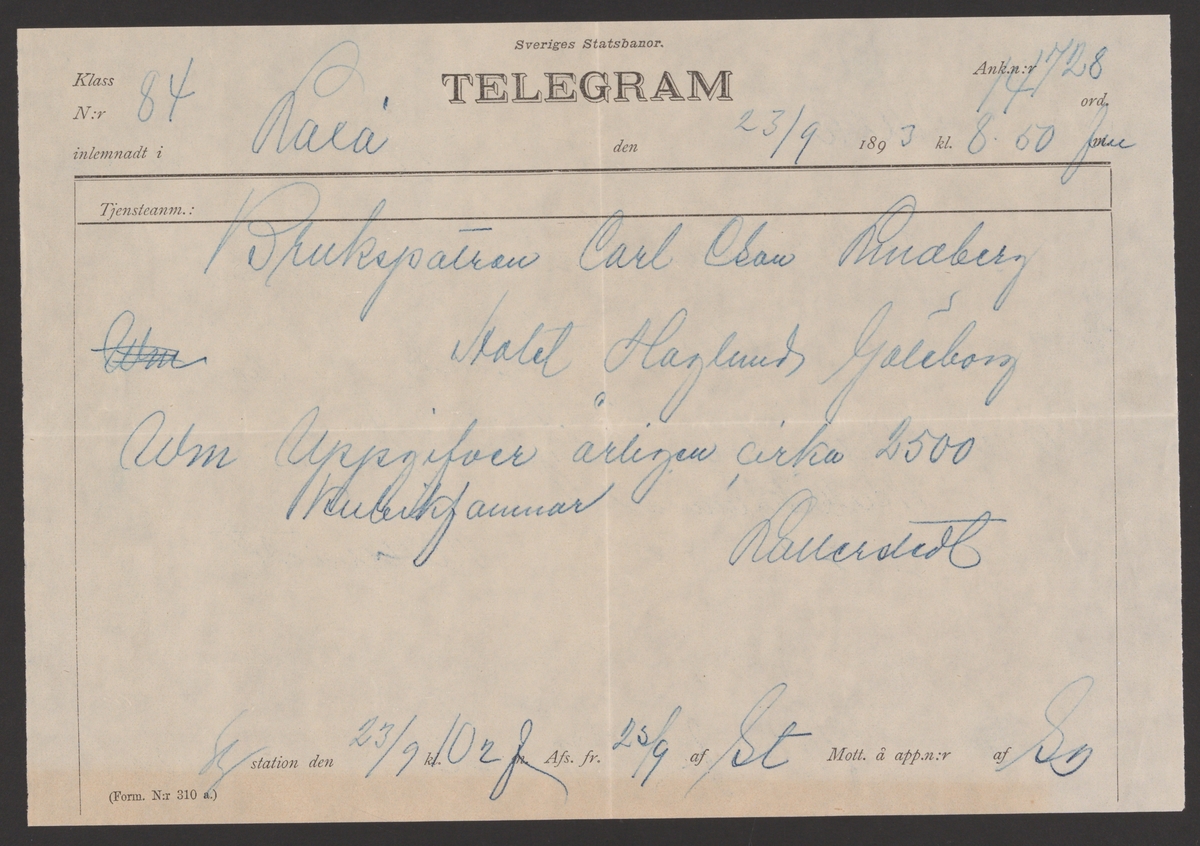 Sveriges Statsbanor.
TELEGRAM
Klass
N:r 84
Ank.n:r 728
14 ord.
inlemnadt i Laxå den 23/9 1893 kl. 8.50 fm
Tjensteanm.:
Brukspatron Carl Cson Lindberg
Wm Hotel Haglund Göteborg
Wm Uppgifver årligen cirka 2500
kubikfamnar
Dallerstedt
station den 23/9 kl. 10 2 f.m. Afs. fr. 23/9 af St Mott. å app.n:r af
(Form. N:r 310 a.)